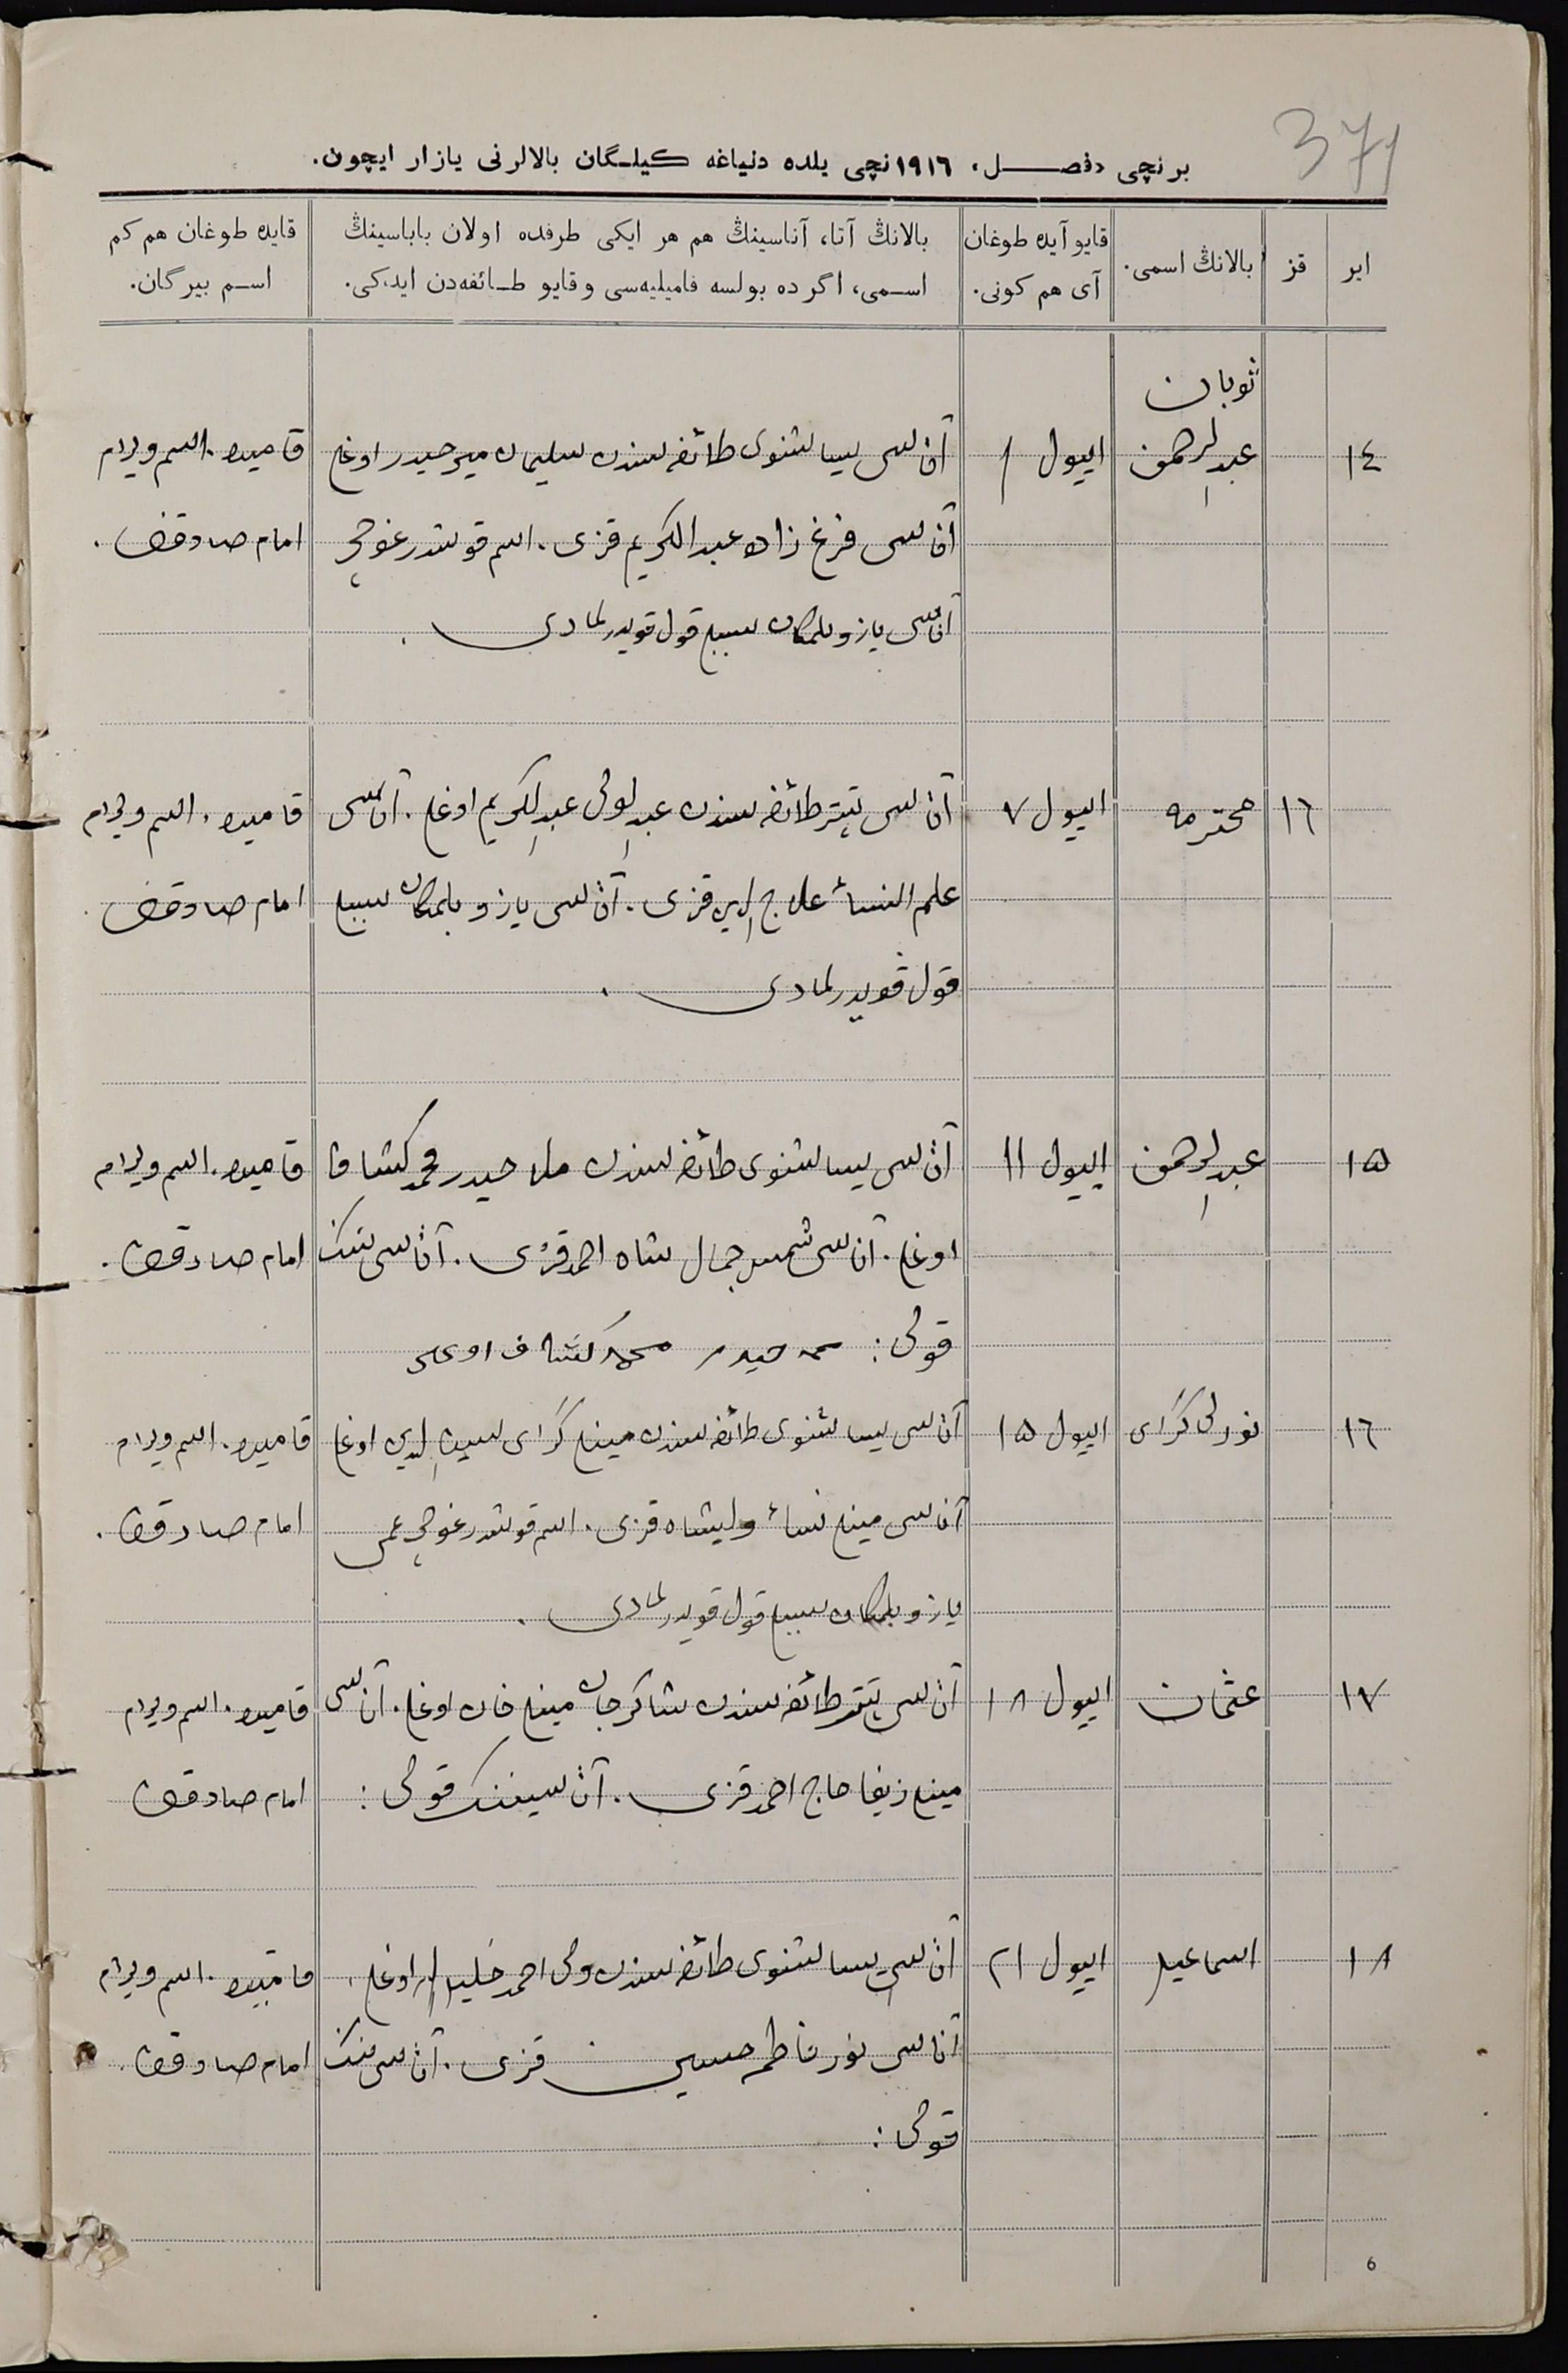 371
برنچی «فصل» ١٩١٦نچی یلده دنیاغه کیلگان بالالرنی یازار ایچون.
ایر
قز
بالانڭ اسمی.
قایو آیده طوغان
آی هم کونی.
بالانڭ آتا، آناسینڭ هم هر ایکی طرفده اولان باباسینڭ
اسمی، اگرده بولسه فامیلیه‌سی و قایو طائفه‌دن ایدکی.
قایده طوغان هم کم
اسم بیرگان.
ثوبان
١٤ عبدالرحمن اییول ١ آتاسی یساشنوی طائفه سندن سلیمان میرحیدر اوغلی اسم ویردم
آناسی فرغ زاده عبدالکریم قزی. اسم قوشدرغوچی امام صادقف.
آناسی یازو بلمکان سببلی قول قویدرلمادی.
١٦ محترمه اییول ٧ آتاسی تپتر طائفه سندن عبدالولی عبدالکریم اوغلی. آناسی اسم ویردم
علم النساء علاج الدین قزی. آتاسی یازو بلمکان سببلی امام صادقف.
قول قویدرلمادی.
١٥ عبدالرحمن اییول ١١ آتاسی یساشنوی طائفه سندن ملا حیدر محمد کشاف اسم ویردم
اوغلی. آناسی شمس جمال شاه احمد قزی. آتاسی ننک امام صادقف.
قولی: حیدر محمد کشاف اوغلی
١٦ نورلی کرای اییول ١٥ آتاسی یساشنوی طائفه سندن مینلی کرای الدین اوغلی اسم ویردم
آناسی مینلی نساء ولیشاه قزی. اسم قوشدرغوچی امام صادقف.
یازو بلمکان سببلی قول قویدرلمادی.
١٧ عثمان اییول ١٨ آتاسی تپتر طائفه سندن شاکرجان مینلی خان اوغلی. آناسی اسم ویردم
مینلی زلیفا حاج احمد قزی. آتاسیننک قولی: امام صادقف
١٨ اسماعیل اییول ٢١ آتاسی یساشنوی طائفه سندن ولی احمد اوغلی، اسم ویردم
آناسی نور فاطمه حسین قزی. آتاسی ننک امام صادقف.
قولی:
6